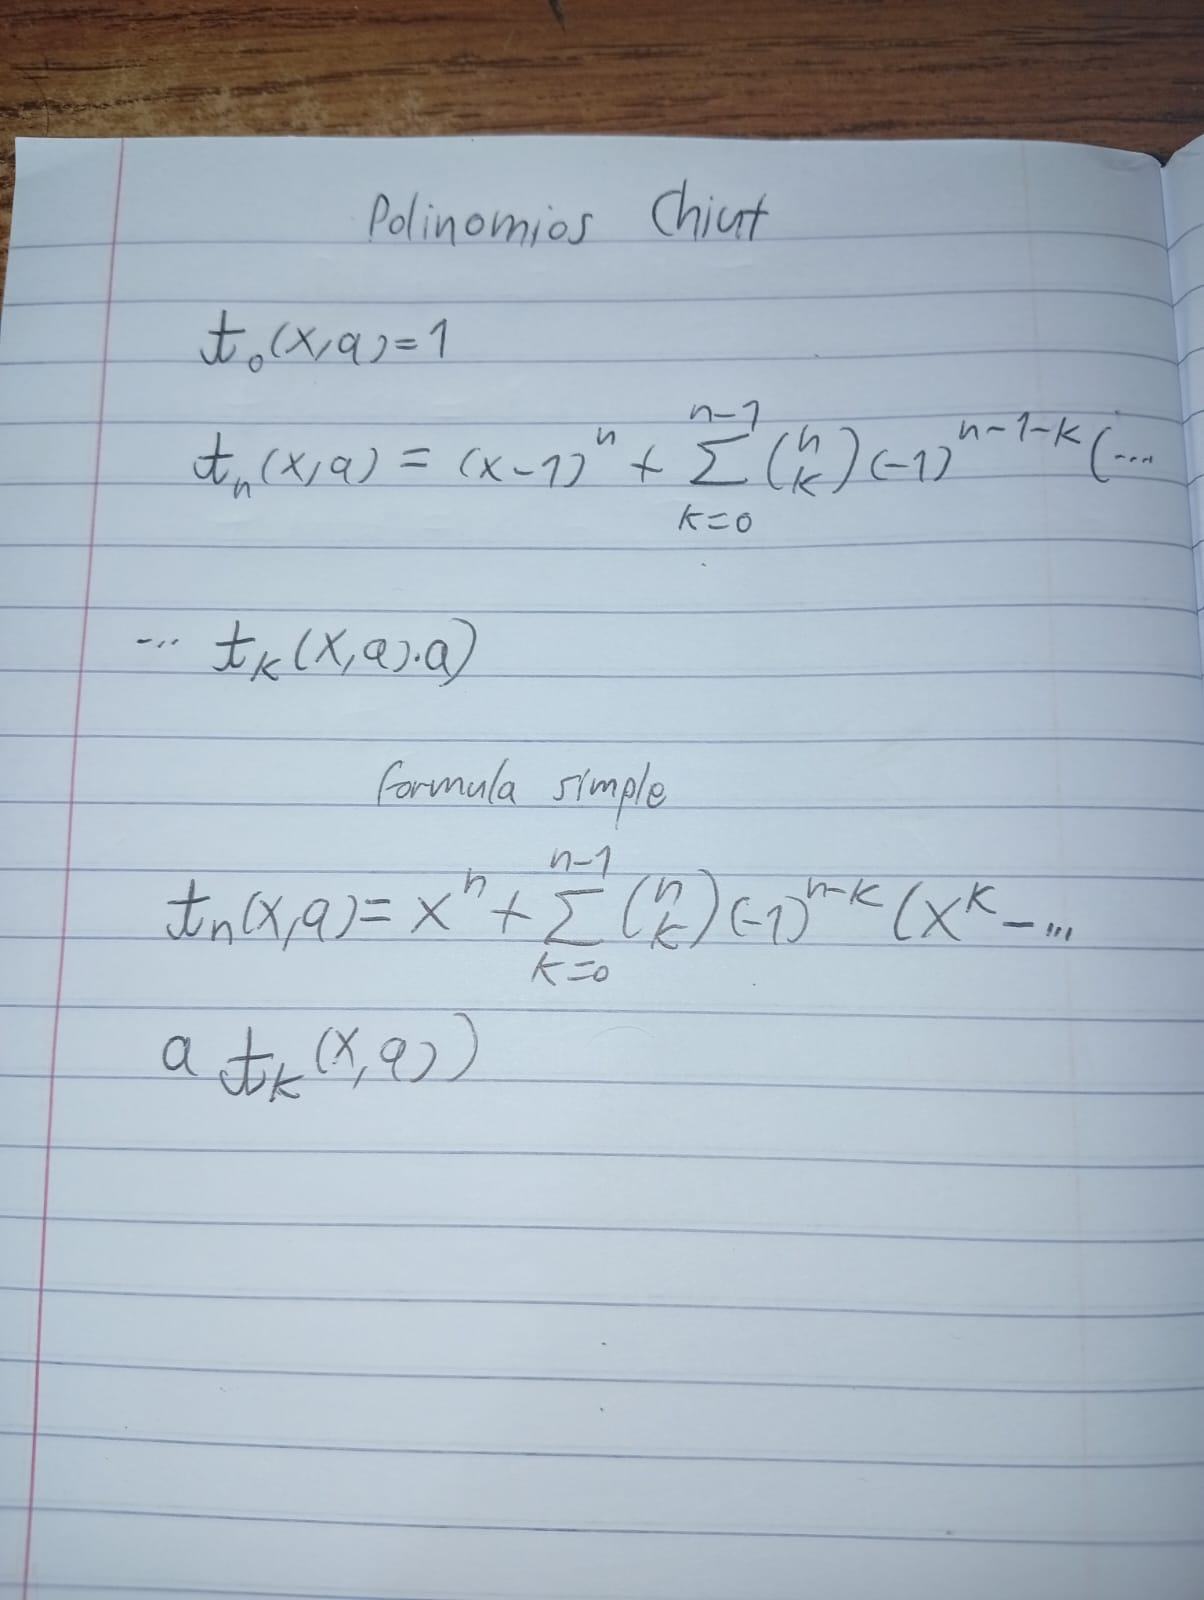 Polinomios Chiut
t₀(x,a)=1
tₙ(x,a) = (x-1)ⁿ + Σ_{k=0}^{n-1} (n k) (-1)^{n-1-k} (...
... tₖ(x,a).a)
formula simple
tₙ(x,a) = xⁿ + Σ_{k=0}^{n-1} (n k) (-1)^{n-k} (x^k - ...
a tₖ(x,a))